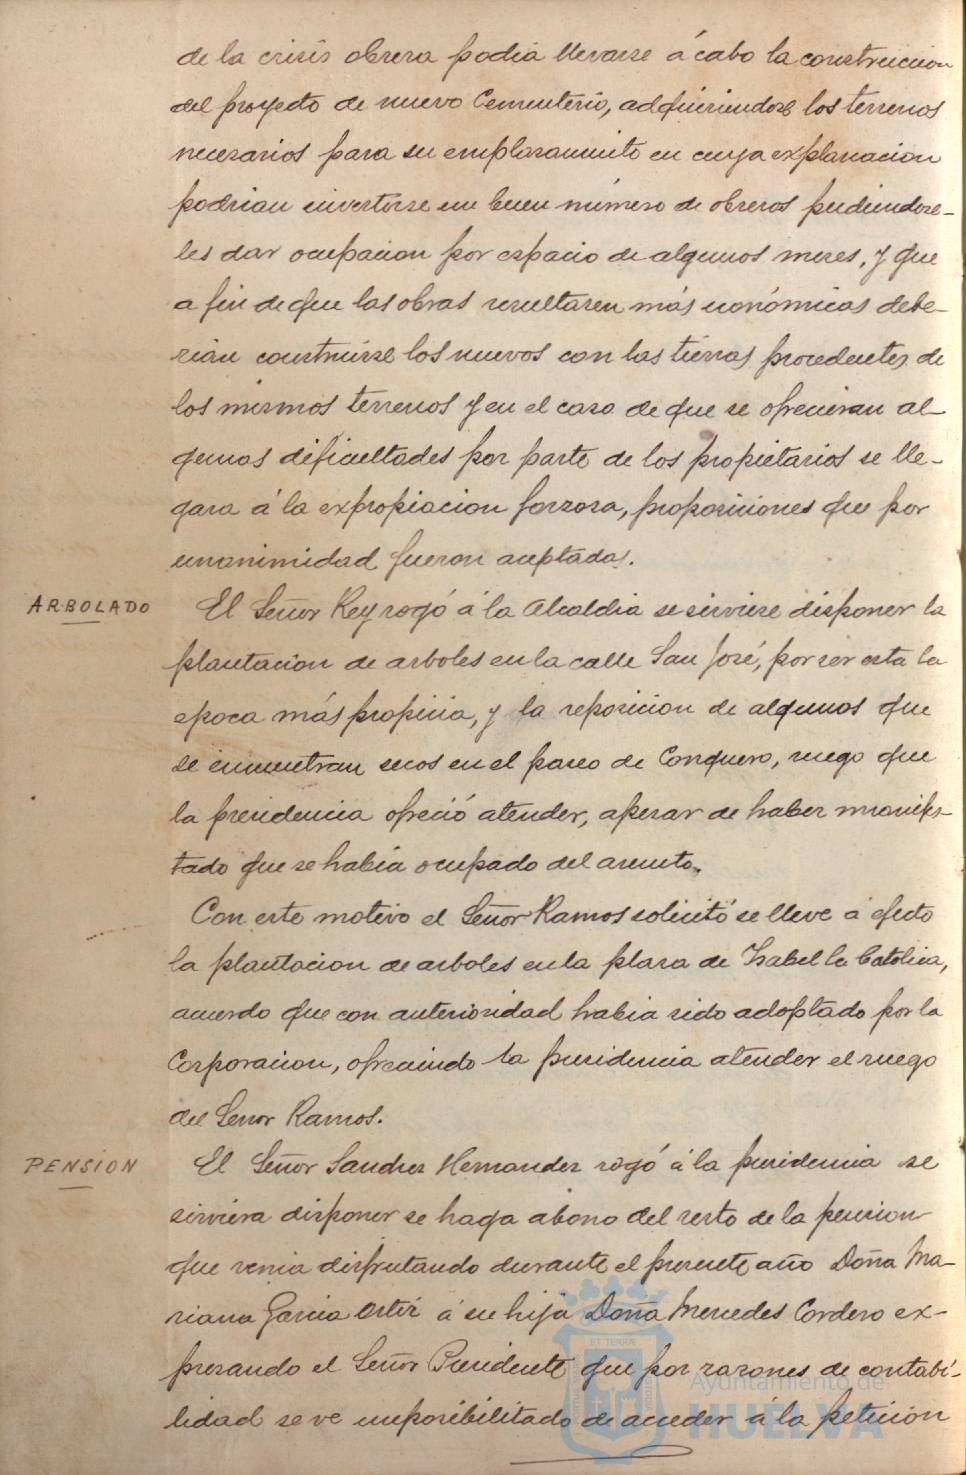 de la crisis obrera podia llevarse á cabo la construccion
del proyecto de nuevo Cementerio, adquiriendose los terrenos
necesarios para su emplazamiento en cuya explanacion
podrian invertirse un buen número de obreros pudiendose-
les dar ocupacion por espacio de algunos meses, y que
a fin de que las obras resultasen más económicas debe-
rian construirse los nuevos con las tierras procedentes de
los mismos terrenos y en el caso de que se ofrecieran al-
gunas dificultades por parte de los propietarios se lle-
gara á la expropiacion forzosa, proposiciones que por
unanimidad fueron aceptadas.
ARBOLADO
El Señor Rey rogó á la Alcaldia se sirviese disponer la
plantacion de arboles en la calle San José, por ser esta la
epoca más propicia, y la reposicion de algunos que
se encuentran secos en el paseo de Conquero, ruego que
la presidencia ofreció atender, apesar de haber manifes-
tado que se habia ocupado del asunto.
Con este motivo el Señor Ramos solicitó se lleve á efecto
la plantacion de arboles en la plaza de Isabel la Catolica,
acuerdo que con anterioridad habia sido adoptado por la
Corporacion, ofreciendo la presidencia atender el ruego
del Señor Ramos.
PENSION
El Señor Sanchez Hernandez rogó á la presidencia se
sirviera disponer se haga abono del resto de la pension
que venia disfrutando durante el presente año Doña Ma-
riana Garcia Ortiz á su hija Doña Mercedes Cordero ex-
presando el Señor Presidente que por razones de contabi-
lidad se ve imposibilitado de acceder á la peticion
Ayuntamiento de
HUELVA